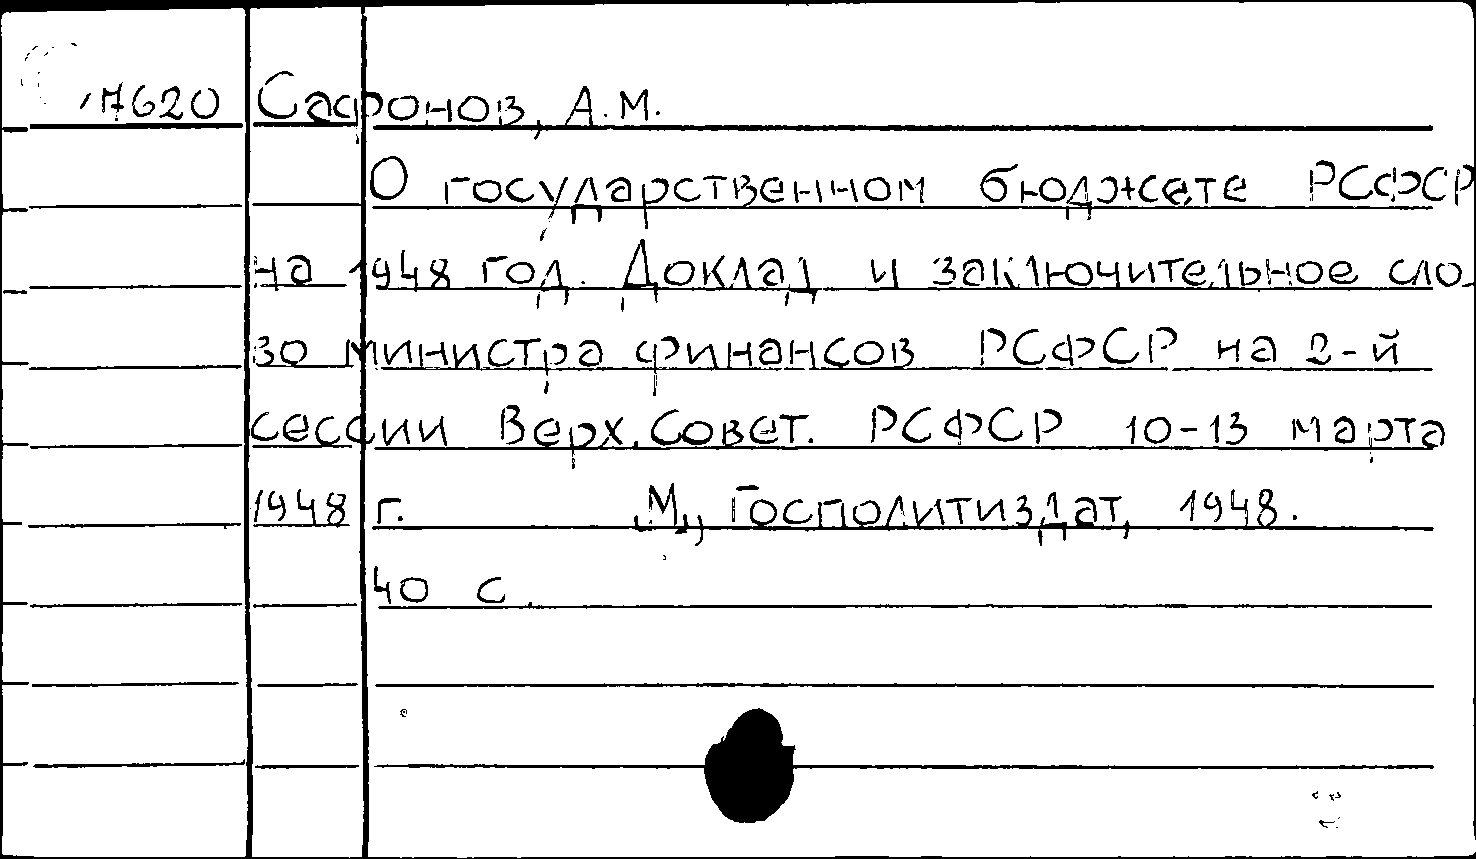 7620 Сафронов, А.М.
О государственном бюджете РСФСР
на 1948 год. Доклад и заключительное сло-
во министра финансов РСФСР на 2-й
сессии Верх. Совет. РСФСР 10-13 марта
1948 г. М., Госполитиздат, 1948.
40 с.